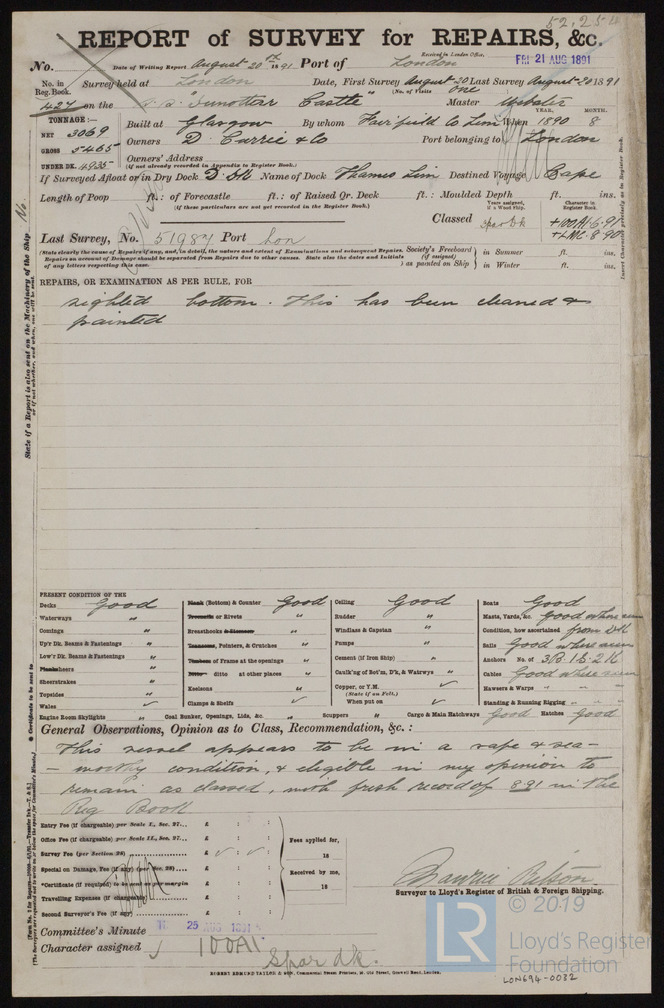 52,254
REPORT of SURVEY for REPAIRS, &c.
Received in London Office,
No. Date of Writing Report August 20th 1891 Port of London FRI 21 AUG 1891
No. in Reg. Book. Survey held at London Date, First Survey August 20 Last Survey August 20 1891
(No. of Visits one
427 on the S.S. Dunottar Castle" Master Webster
TONNAGE:— YEAR. MONTH.
NET 3069 Built at Glasgow By whom Fairfield Co Lim When 1890 8
GROSS 5465 Owners D. Currie & Co Port belonging to London
UNDER DK. 4935 Owners' Address
(if not already recorded in Appendix to Register Book.)
If Surveyed Afloat or in Dry Dock D. Dk Name of Dock Thames Lim Destined Voyage Cape
Length of Poop ft.: of Forecastle ft.: of Raised Qr. Deck ft.: Moulded Depth ft. ins.
(If these particulars are not yet recorded in the Register Book.)
Years assigned, if a Wood Ship. Character in Register Book.
Classed spar dk +100A1 6.91
+LMC 8.90
Last Survey, No. 51984 Port Lon
(State clearly the cause of Repairs if any, and, in detail, the nature and extent of Examinations and subsequent Repairs.
Repairs on account of Damage should be separated from Repairs due to other causes. State also the dates and Initials
of any letters respecting this case.
Society's Freeboard (if assigned) as painted on Ship
in Summer ft. ins.
in Winter ft. ins.
REPAIRS, OR EXAMINATION AS PER RULE, FOR
sighted bottom. This has been cleaned &
painted
PRESENT CONDITION OF THE
Decks Good
Waterways "
Comings "
Up'r Dk. Beams & Fastenings "
Low'r Dk. Beams & Fastenings "
Plansheers "
Sheerstrakes "
Topsides "
Wales ✓
Engine Room Skylights "
Plank (Bottom) & Counter Good
Treenails or Rivets "
Breasthooks & Sternson "
Transoms, Pointers, & Crutches "
Timbers of Frame at the openings "
Ditto ditto at other places "
Keelsons "
Clamps & Shelfs ✓
Coal Bunker, Openings, Lids, &c. "
Ceiling Good
Rudder "
Windlass & Capstan "
Pumps "
Cement (if Iron Ship) "
Caulk'ng of Bot'm, D'k, & Watrwys
Copper, or Y.M. (State if on Felt.)
When put on
Scuppers "
Boats Good
Masts, Yards, &c. Good where seen
Condition, how ascertained from Dk
Sails Good where seen
Anchors No. of 3B. 1S. 2K
Cables Good where seen
Hawsers & Warps " " "
Standing & Running Rigging " " "
Cargo & Main Hatchways Good Hatches Good
General Observations, Opinion as to Class, Recommendation, &c.:
This vessel appears to be in a safe & sea-
-worthy condition, & eligible in my opinion to
remain as classed, with fresh record of 8.91 in the
Reg Book
Entry Fee (if chargeable) per Scale I., Sec. 27... £ : :
Office Fee (if chargeable) per Scale II., Sec. 27... £ : :
Survey Fee (per Section 28) £ : :
Special on Damage, Fee (if any) (per Sec. 28) £ : :
*Certificate (if required) to be sent as per margin
Travelling Expenses (if chargeable) £ : :
Second Surveyor's Fee (if any) £ : :
Fees applied for, 18
Received by me, 18
Surveyor to Lloyd's Register of British & Foreign Shipping.
Committee's Minute 25 AUG 1891
Character assigned 100A1
Spar dk.
ROBERT EDMUND TAYLOR & SON, Commercial Steam Printers, 19, Old Street, Goswell Road, London.
State if a Report is also sent on the Machinery of the Ship No.
or if not whether, and when, one will be sent.
* Certificate to be sent to
Insert Character precisely as in Register Book.
LR
© 2019
Lloyd's Register
Foundation
LON694-0032